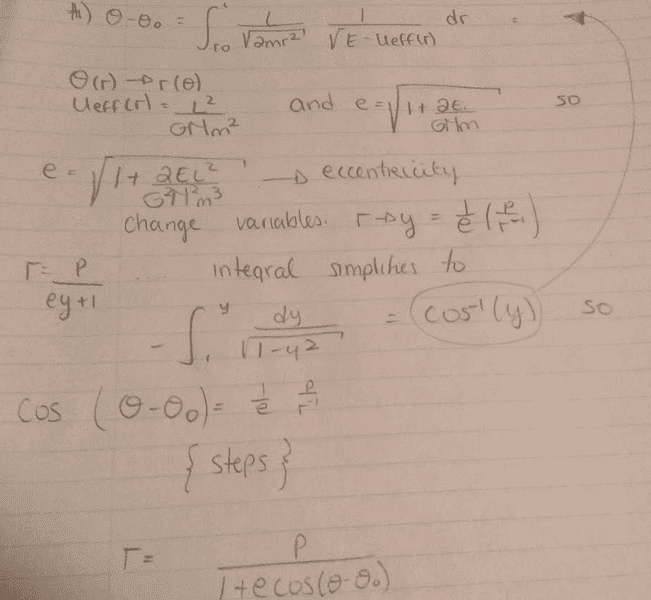 A) θ-θ₀ = ∫ᵣ₀ʳ L/√2mr² 1/√E-Ueff(r) dr =
θ(r) → r(θ)
Ueff(r) = L²/GMm² and e = √1+2E/GMm so
e = √1+2EL²/G²M²m³ → eccentricity
Change variables. r→y = 1/e (p/r⁻¹)
r = p/ey+1 .... integral simplifies to
- ∫₁ʸ dy/√1-y² = cos⁻¹(y) so
cos (θ-θ₀) = 1/e p/r⁻¹
{ steps }
r = p/1+e cos(θ-θ₀)